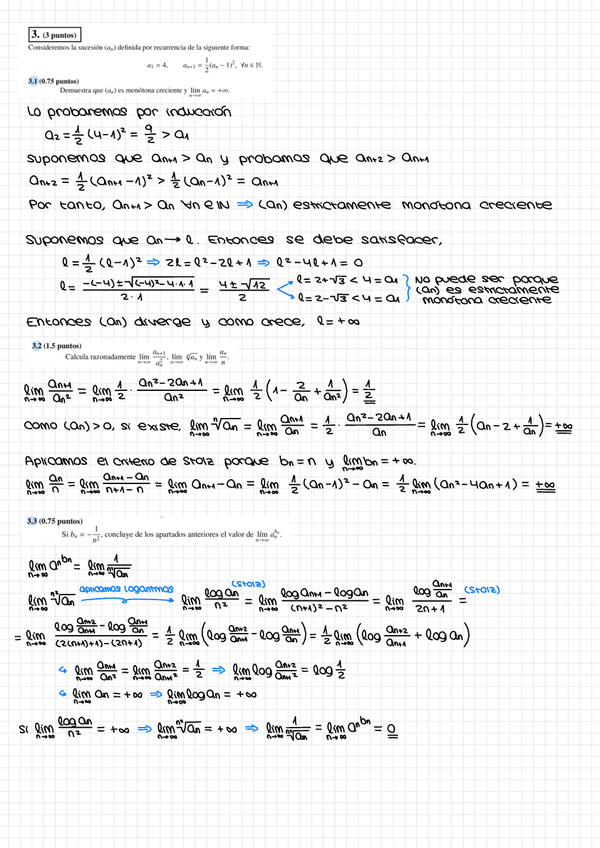 3. (3 puntos)
Consideremos la sucesión (aₙ) definida por recurrencia de la siguiente forma:
a₁ = 4, aₙ₊₁ = 1/2 (aₙ − 1)², ∀n ∈ ℕ.
3.1 (0.75 puntos)
Demuestra que (aₙ) es monótona creciente y lim_{n→∞} aₙ = +∞.
Lo probaremos por inducción
a₂ = 1/2 (4−1)² = 9/2 > a₁
Suponemos que aₙ₊₁ > aₙ y probamos que aₙ₊₂ > aₙ₊₁
aₙ₊₂ = 1/2 (aₙ₊₁ − 1)² > 1/2 (aₙ−1)² = aₙ₊₁
Por tanto, aₙ₊₁ > aₙ ∀n ∈ ℕ ⇒ (aₙ) estrictamente monótona creciente
Suponemos que aₙ → ℓ. Entonces se debe satisfacer,
ℓ = 1/2 (ℓ−1)² ⇒ 2ℓ = ℓ² − 2ℓ + 1 ⇒ ℓ² − 4ℓ + 1 = 0
ℓ = (−(−4) ± √((−4)² − 4·1·1)) / (2·1) = (4 ± √12) / 2
ℓ = 2+√3 < 4 = a₁
ℓ = 2−√3 < 4 = a₁
No puede ser porque
(aₙ) es estrictamente
monótona creciente
Entonces (aₙ) diverge y como crece, ℓ = +∞
3.2 (1.5 puntos)
Calcula razonadamente lim_{n→∞} aₙ₊₁/aₙ², lim_{n→∞} ⁿ√aₙ y lim_{n→∞} aₙ/n.
lim_{n→∞} aₙ₊₁/aₙ² = lim_{n→∞} 1/2 · (aₙ² − 2aₙ + 1)/aₙ² = lim_{n→∞} 1/2 (1 − 2/aₙ + 1/aₙ²) = 1/2
Como (aₙ) > 0, si existe, lim_{n→∞} ⁿ√aₙ = lim_{n→∞} aₙ₊₁/aₙ = 1/2 · (aₙ² − 2aₙ + 1)/aₙ = lim_{n→∞} 1/2 (aₙ − 2 + 1/aₙ) = +∞
Aplicamos el criterio de Stolz porque bₙ = n y lim_{n→∞} bₙ = +∞.
lim_{n→∞} aₙ/n = lim_{n→∞} (aₙ₊₁ − aₙ)/(n+1−n) = lim_{n→∞} aₙ₊₁ − aₙ = lim_{n→∞} 1/2 (aₙ−1)² − aₙ = 1/2 lim_{n→∞} (aₙ² − 4aₙ + 1) = +∞
3.3 (0.75 puntos)
Si bₙ = −1/n², concluye de los apartados anteriores el valor de lim_{n→∞} aₙ^{bₙ}.
lim_{n→∞} aₙ^{bₙ} = lim_{n→∞} 1/ⁿ²√aₙ
lim_{n→∞} ⁿ²√aₙ aplicamos logaritmos lim_{n→∞} log aₙ/n² (Stolz) = lim_{n→∞} (log aₙ₊₁ − log aₙ)/((n+1)² − n²) = lim_{n→∞} (log aₙ₊₁/aₙ)/(2n+1) = (Stolz)
= lim_{n→∞} (log aₙ₊₂/aₙ₊₁ − log aₙ₊₁/aₙ)/((2(n+1)+1) − (2n+1)) = 1/2 lim_{n→∞} (log aₙ₊₂/aₙ₊₁ − log aₙ₊₁/aₙ) = 1/2 lim_{n→∞} (log aₙ₊₂/aₙ₊₁ + log aₙ)
↳ lim_{n→∞} aₙ₊₁/aₙ² = lim_{n→∞} aₙ₊₂/aₙ₊₁² = 1/2 ⇒ lim_{n→∞} log aₙ₊₂/aₙ₊₁² = log 1/2
↳ lim_{n→∞} aₙ = +∞ ⇒ lim_{n→∞} log aₙ = +∞
Si lim_{n→∞} log aₙ/n² = +∞ ⇒ lim_{n→∞} ⁿ²√aₙ = +∞ ⇒ lim_{n→∞} 1/ⁿ²√aₙ = lim_{n→∞} aₙ^{bₙ} = 0